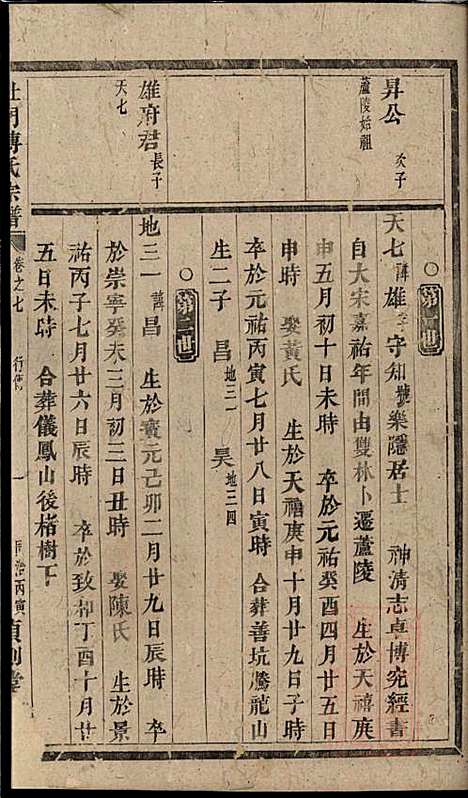 昇公 次子
蘆陵始祖
雄府君 長子
天七
第一世
天七 諱雄字守知號樂隱居士 神清志卓博究經書
自大宋嘉祐年間由雙林卜遷蘆陵 生於天禧庚
申五月初十日未時 卒於元祐癸酉四月廿五日
申時 娶黃氏 生於天禧庚申十月廿九日子時
卒於元祐丙寅七月廿八日寅時 合葬善坑騰龍山
生二子 昌地三一 昊地三四
第二世
地三一 諱昌 生於寶元己卯二月廿九日辰時 卒
於崇寧癸未三月初三日丑時 娶陳氏 生於景
祐丙子七月廿六日辰時 卒於致和丁酉十月廿
五日未時 合葬儀鳳山後楮樹下
杜門傅氏宗譜 卷之七 行傳 一 同治丙寅